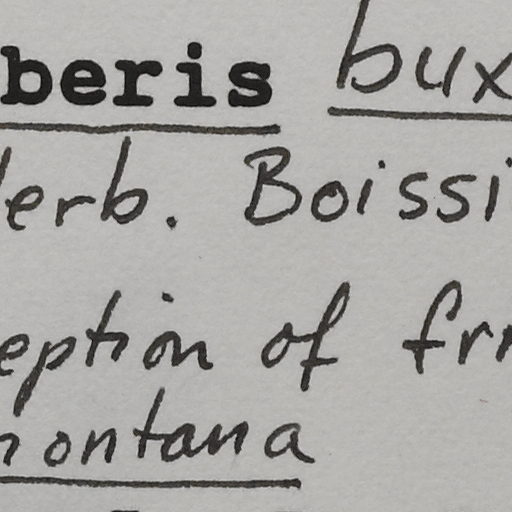 beris bux
Herb. Boissi
eption of frn
montana